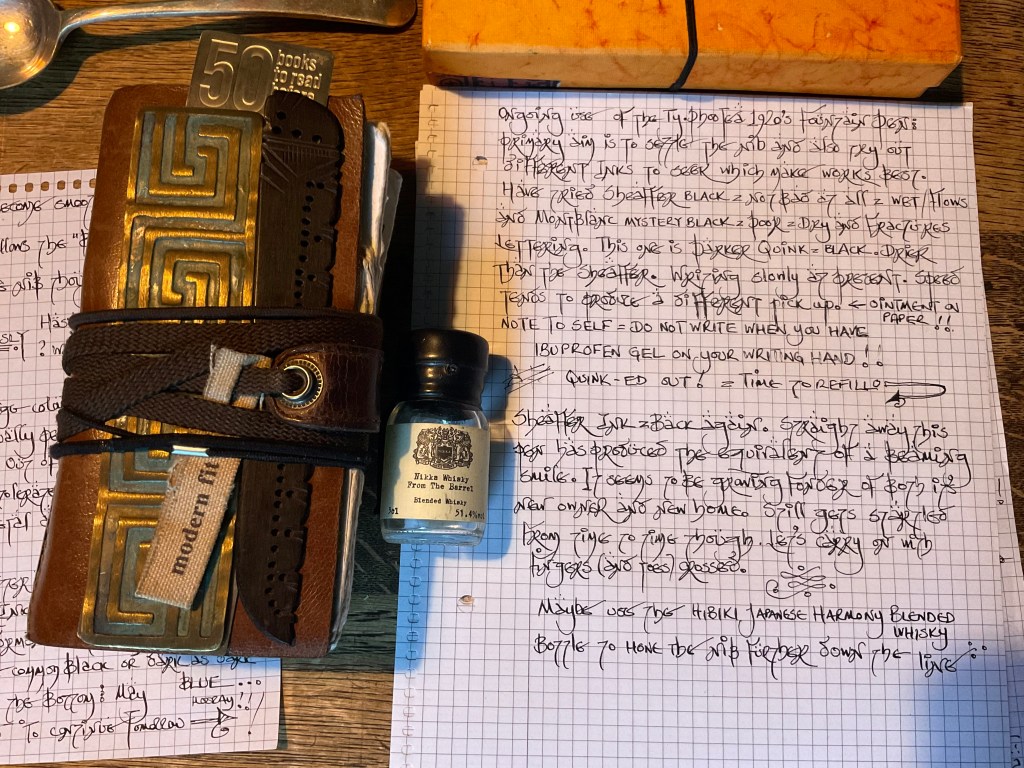 50
books
to read
ECOME SMOO
LLOWS THE
NIB
HAS
OUT OF
COMMON BLACK OR DARK AS
THE BOTTOM: MAY BLUE ...
HOORAY!!
TO CONTINUE TOMORROW
modern fit
Nikka Whisky
From The Barrel
Blended Whisky
3cl 51.4%
ONGOING USE OF THE TYPHOO TEA 1920's FOUNTAIN PEN:
PRIMARY AIM IS TO SETTLE THE NIB AND ALSO TRY OUT
DIFFERENT INKS TO SEEK WHICH MAKE WORKS BEST.
HAVE TRIED SHEAFFER BLACK = NOT BAD AT ALL = WET/FLOWS
AND MONTBLANC MYSTERY BLACK = POOR = DRY AND FRACTURES
LETTERING. THIS ONE IS PARKER QUINK = BLACK. DRIER
THAN THE SHEAFFER. WRITING SLOWLY AT PRESENT. SPEED
TENDS TO PRODUCE A DIFFERENT PICK UP. ← OINTMENT ON
PAPER!!
NOTE TO SELF = DO NOT WRITE WHEN YOU HAVE
IBUPROFEN GEL ON YOUR WRITING HAND!!
QUINK-ED OUT! = TIME TO REFILL
SHEAFFER INK = BACK AGAIN. STRAIGHT AWAY THIS
PEN HAS PRODUCED THE EQUIVALENT OF A BEAMING
SMILE. IT SEEMS TO BE GROWING FONDER OF BOTH ITS
NEW OWNER AND NEW HOME. STILL GETS STARTLED
FROM TIME TO TIME THOUGH. LET'S CARRY ON WITH
FINGERS (AND TOES) CROSSED.
MAYBE USE THE HIBIKI JAPANESE HARMONY BLENDED
WHISKY
BOTTLE TO HONE THE NIB FURTHER DOWN THE LINE